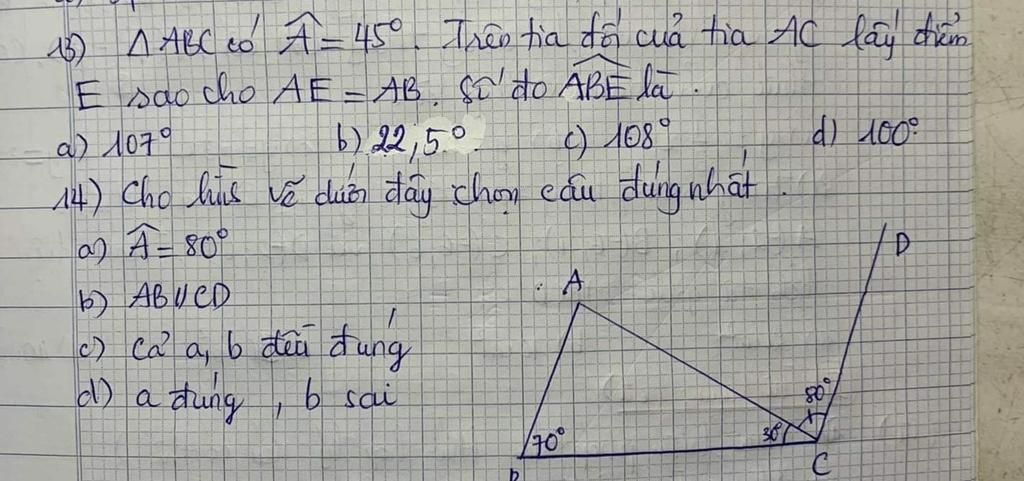 13) Δ ABC có Â = 45°. Trên tia đối của tia AC lấy điểm
E sao cho AE = AB. Số đo ABE là.
a) 107° b) 22,5° c) 108° d) 100°
14) Cho hình vẽ dưới đây chọn câu đúng nhất.
a) Â = 80°
b) AB // CD
c) Cả a, b đều đúng
d) a đúng, b sai
A
D
80°
70°
30°
B
C